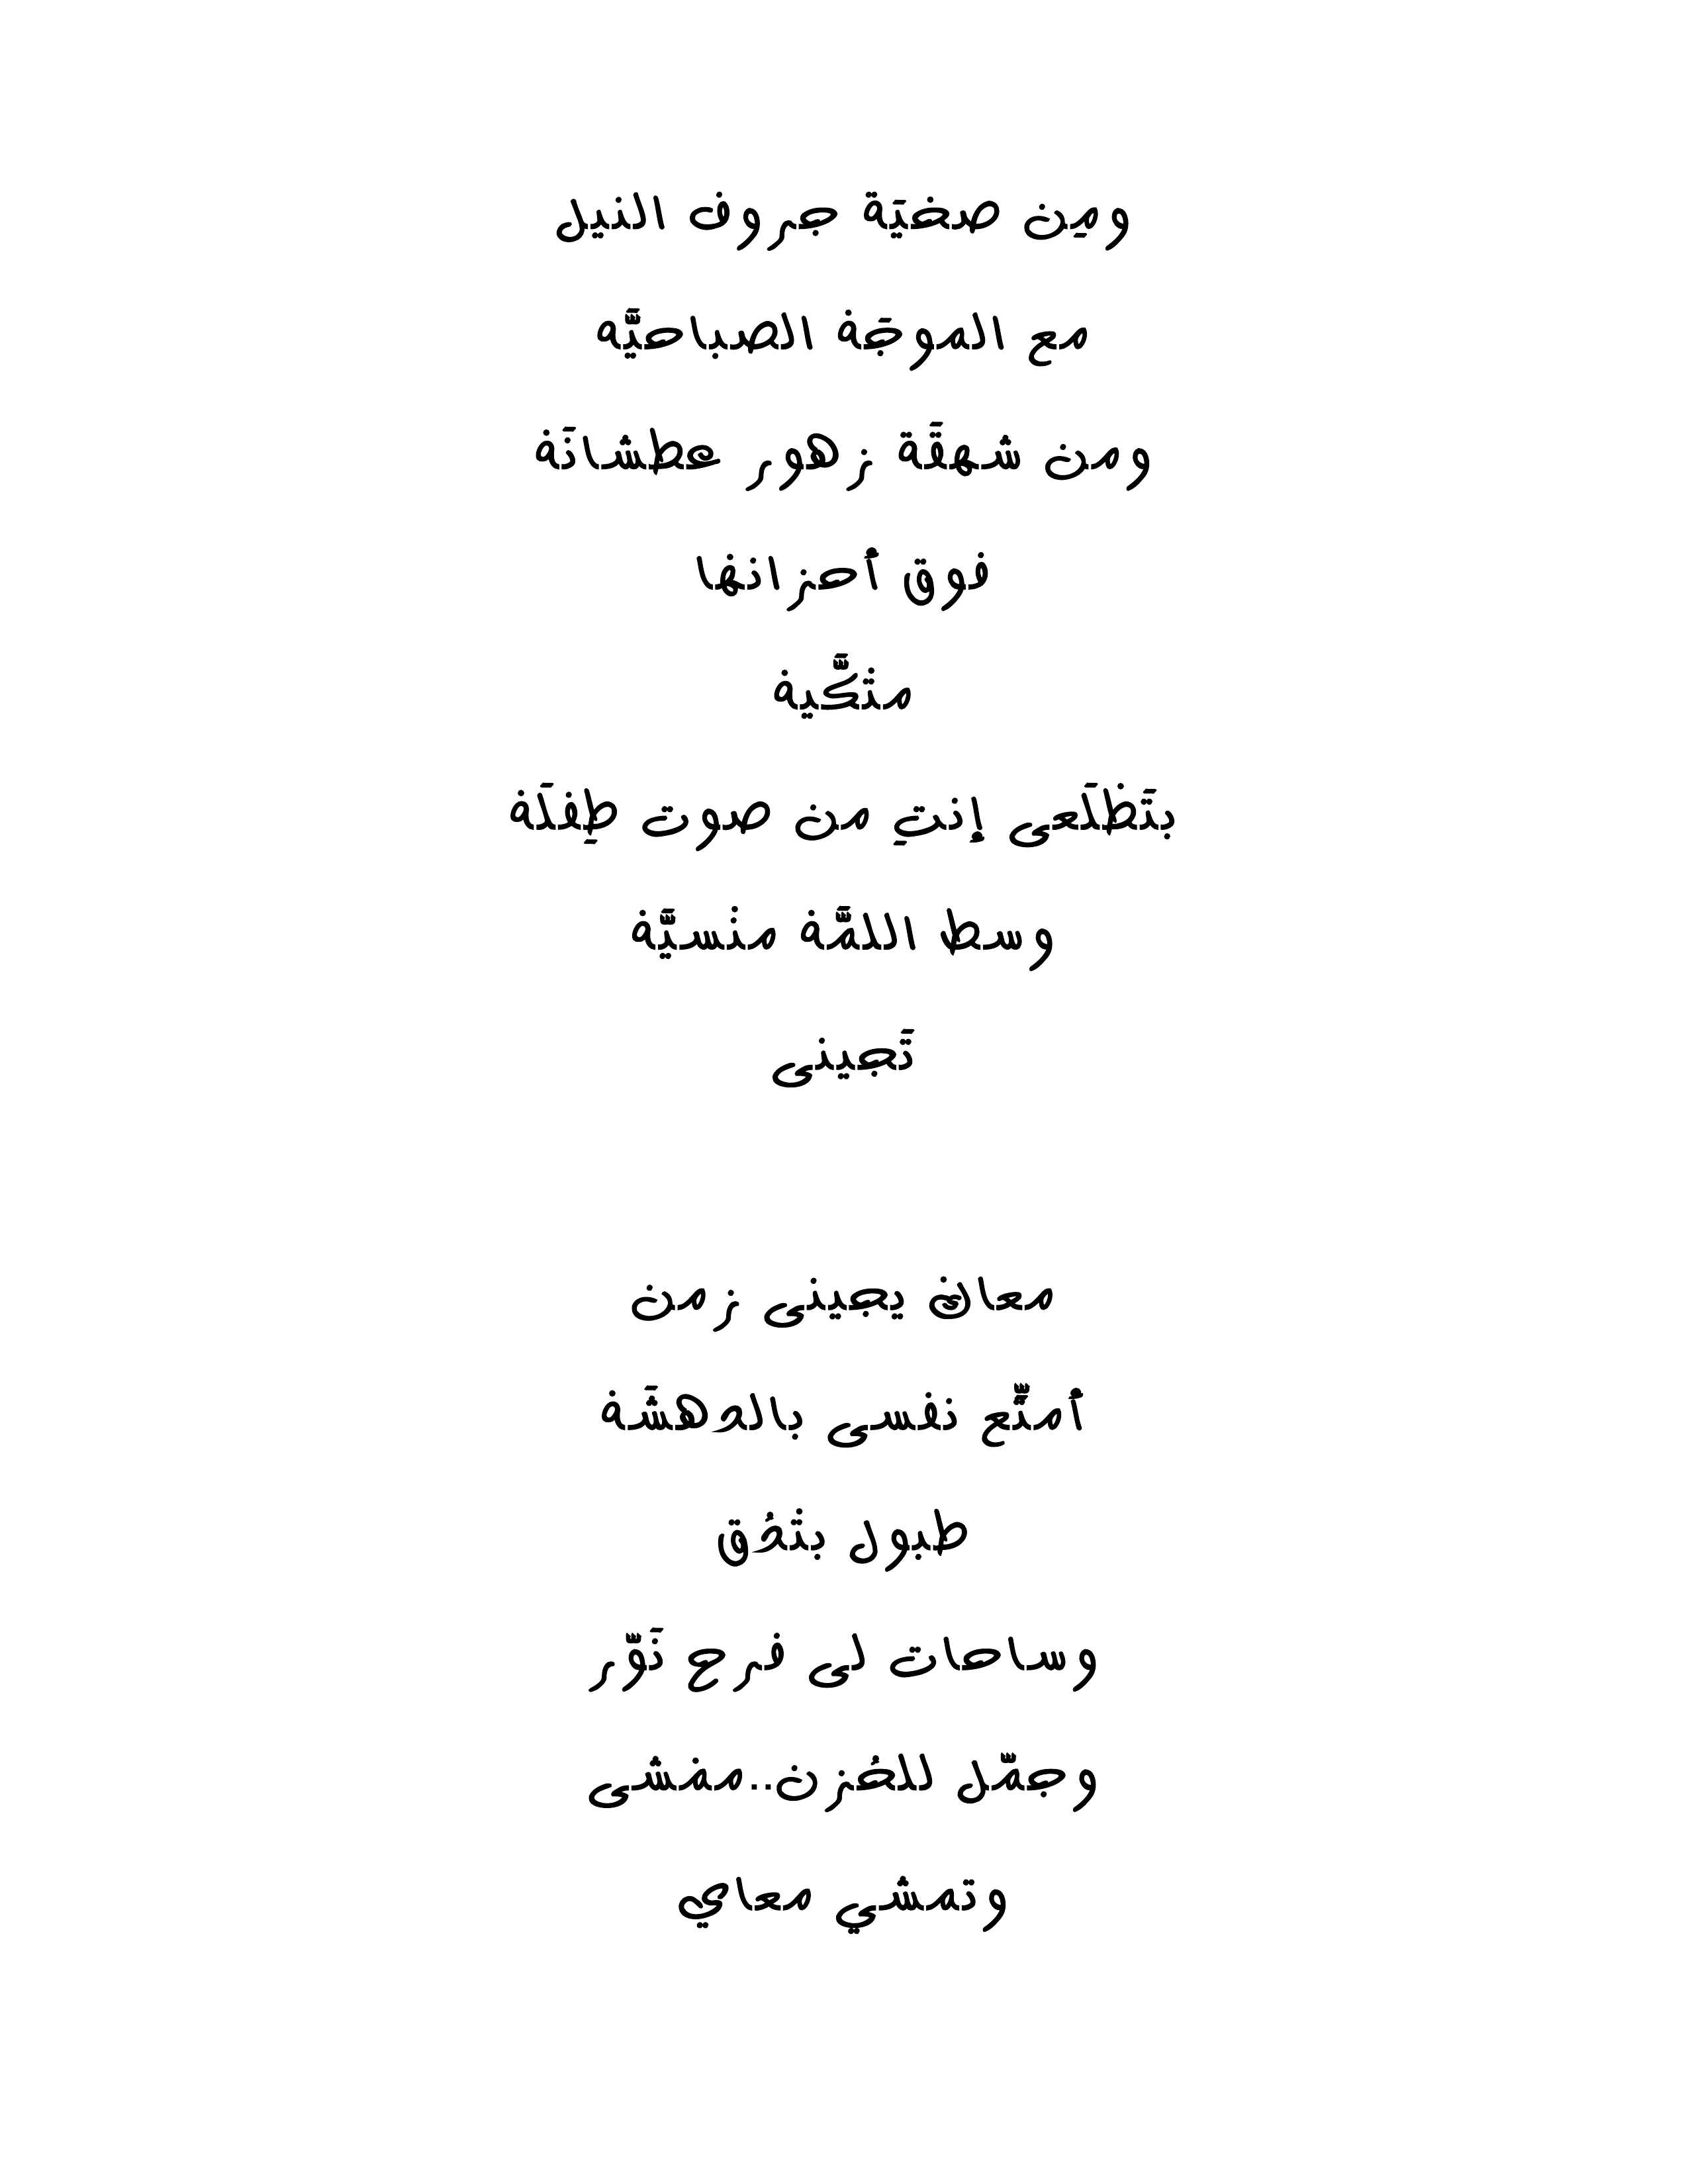 ومِن صخيَة جروف النيل
مع الموجَة الصباحيَّه
ومن شهقَة زهور عطشانَة
فوق أحزانها
متْكَّية
بتَظلَعى إنتِ من صوت طِفلَة
وسط اللمَّة منْسيَّة
تَجينى
معاك يجينى زمن
أمتِّع نفسى بالدهشَة
طبول بتْدُق
وساحات لى فرح نَوّر
وجمّل للحُزن..ممْشى
وتمشي معاي